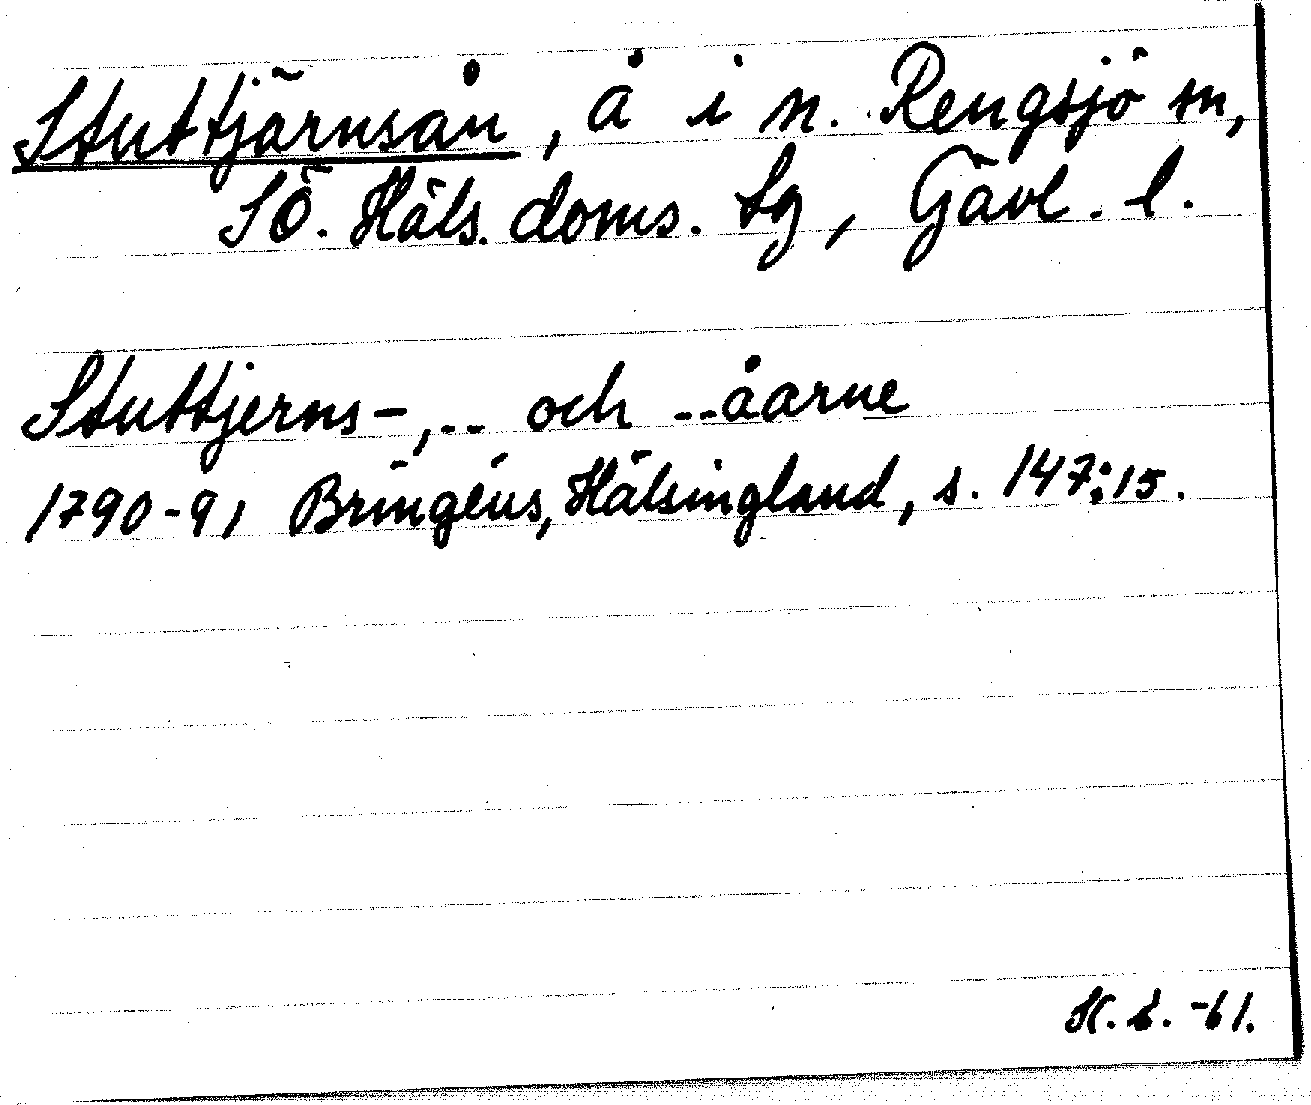 Stuttjärnsån, å i n. Rengsjö sn,
SÖ. Häls. doms. sg, Gävl. l.
Stuttjerns-, -- och --åarne
1790-91 Bringéus, Hälsingland, s. 147:15.
-61.